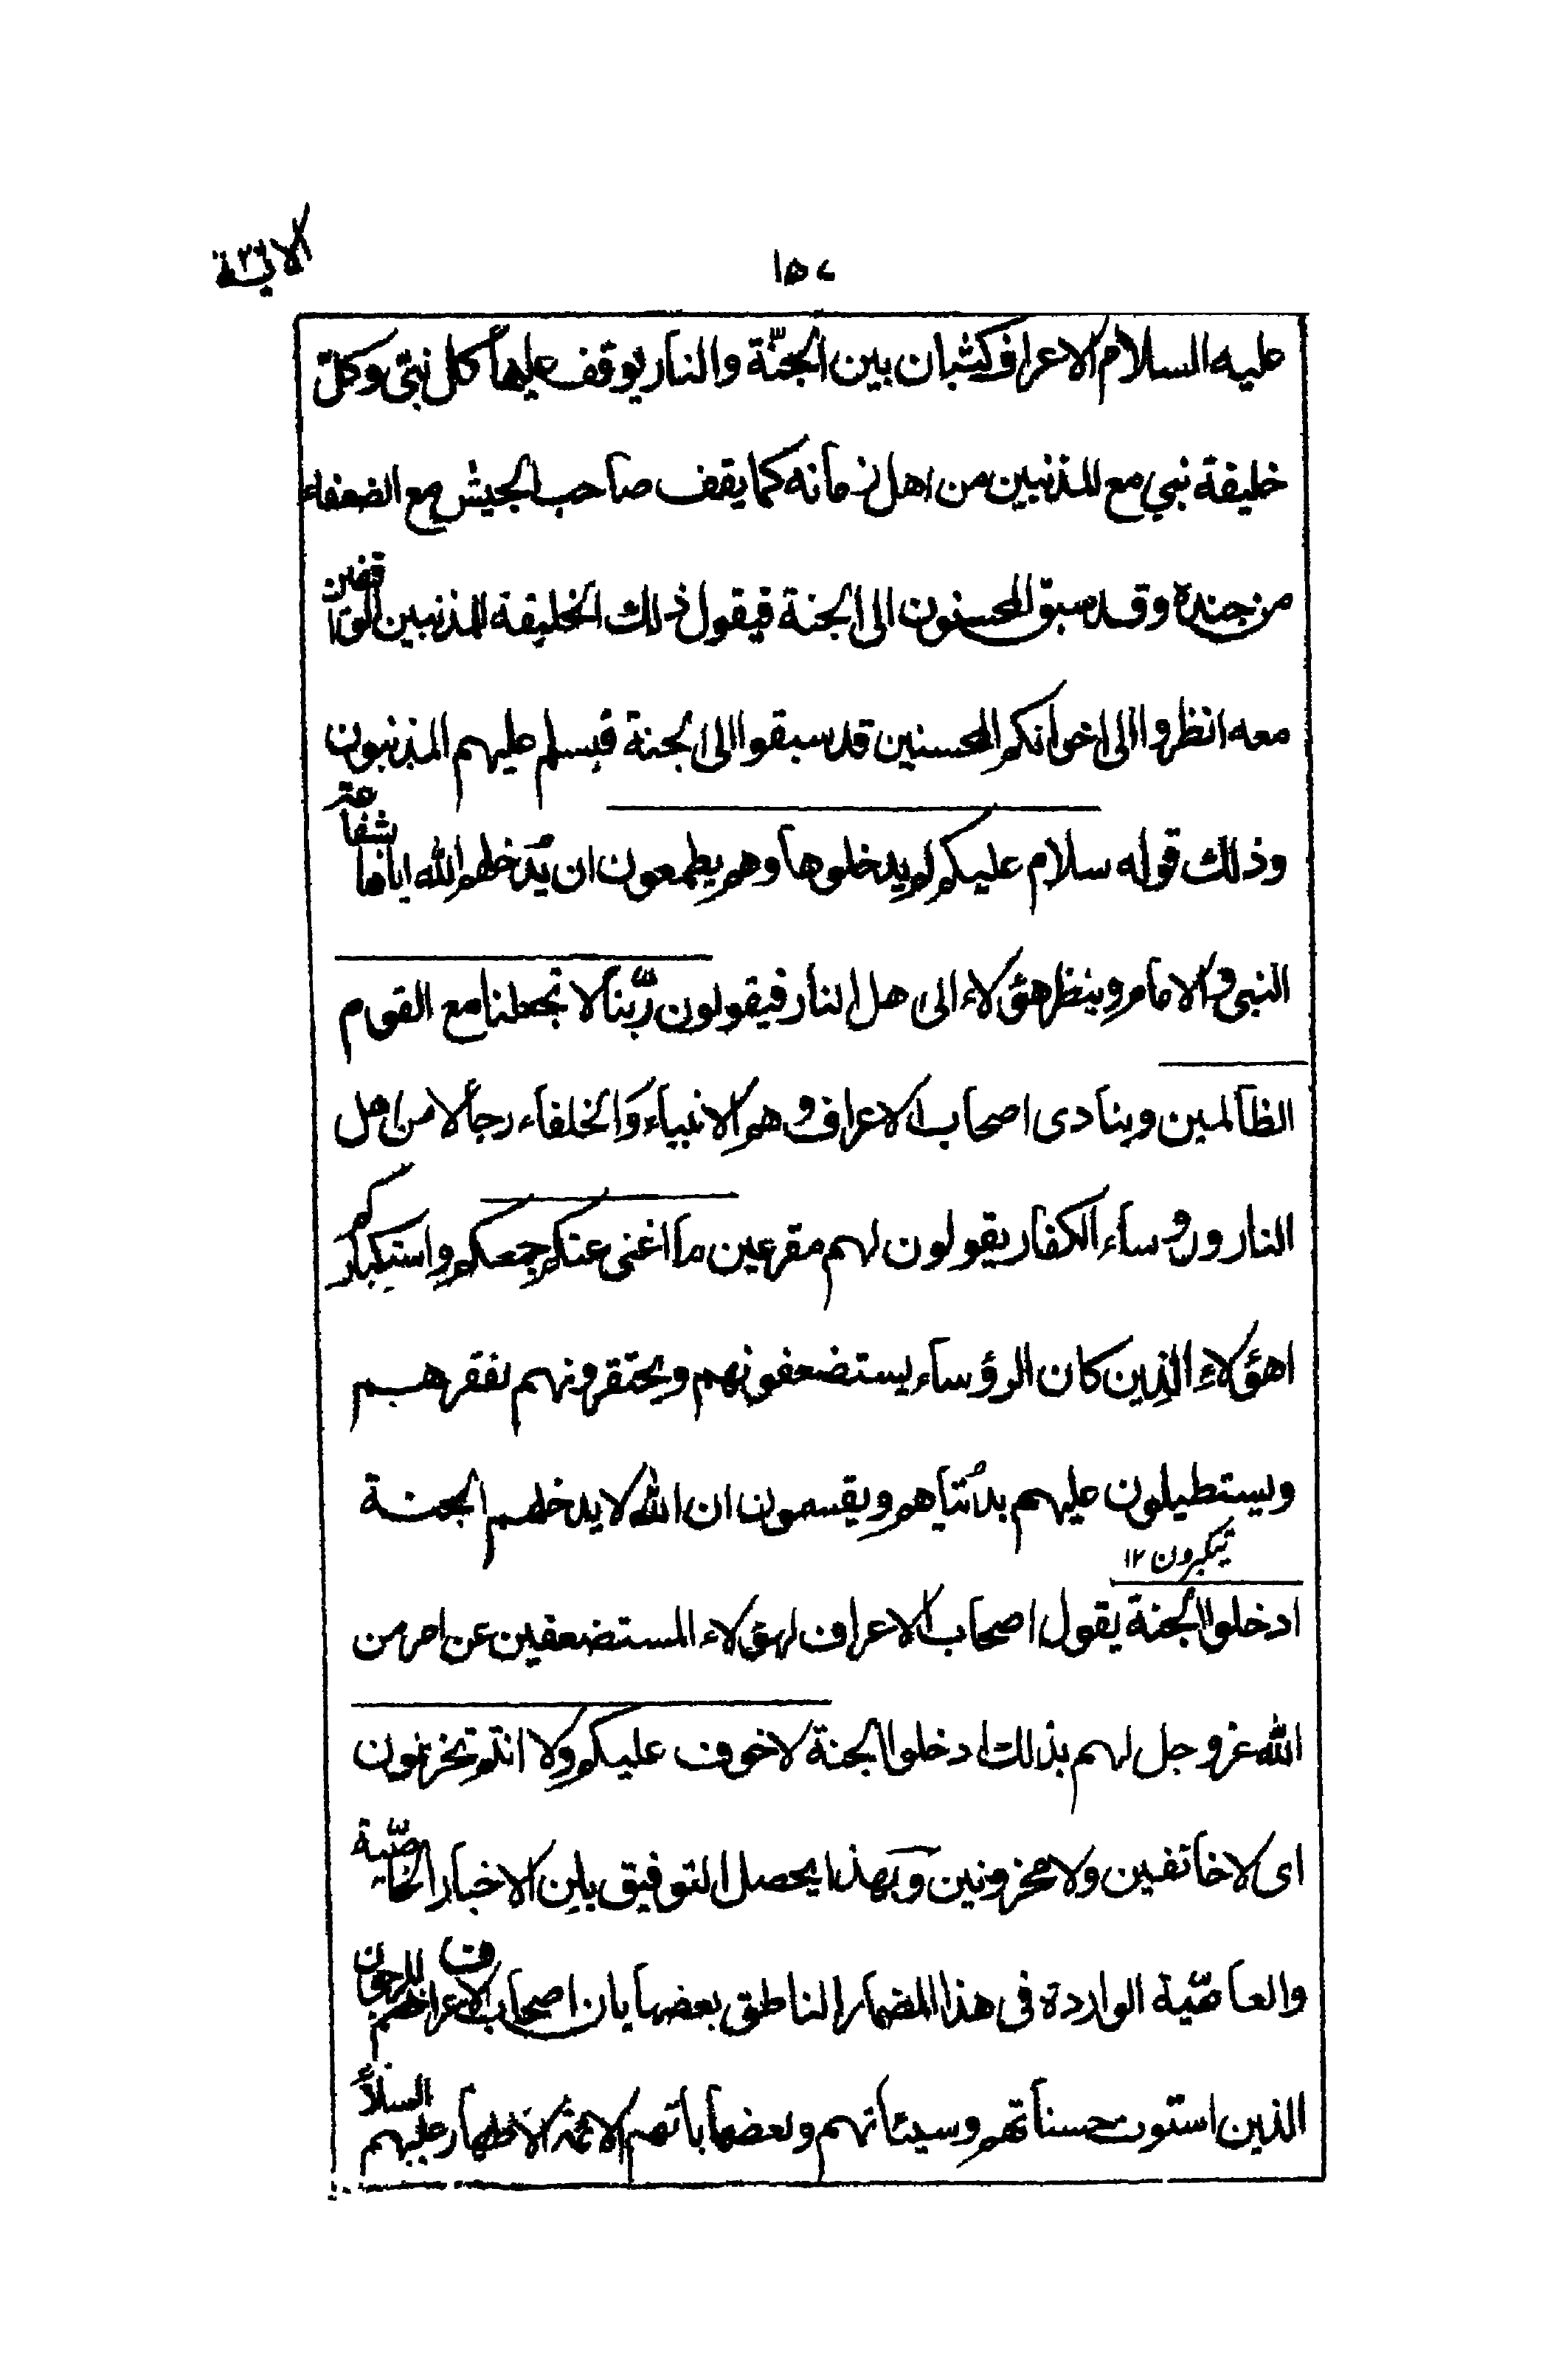 ١٥٧
الاتية
عليه السلام الاعراف كثبان بين الجنّة والنار يوقف عليها كل نبيّ وكلّ
خليفة نبي مع المذنبين من اهل زمانه كما يقف صاحب الجيش مع الضعفاء
من جنده وقد سبق المحسنون الى الجنة فيقول ذلك الخليفة للمذنبين الواقفين
معه انظروا الى اخوانكم المحسنين قد سبقوا الى الجنة فيسلم عليهم المذنبون
وذلك قوله سلام عليكم لم يدخلوها وهم يطمعون ان يُدخلهم الله اياها بشفاعة
النبي والامام وينظر هؤلاء الى هل النار فيقولون ربّنا لا تجعلنا مع القوم
الظالمين وينادى اصحاب الاعراف وهم الانبياء والخلفاء رجالا من اهل
النار ورؤساء الكفار يقولون لهم مقرعين ما اغنى عنكم جمعكم واستكباركم
اهؤلاء الذين كان الرؤساء يستضعفونهم ويحتقرونهم بفقرهم
ويستطيلون عليهم بدُنياهم ويقسمون ان الله لا يدخلهم الجنة
يتكبرون ١٢
ادخلوا الجنة يقول اصحاب الاعراف لهؤلاء المستضعفين عن امر من
الله عز وجل لهم بذلك ادخلوا الجنة لا خوف عليكم ولا انتم تحزنون
اى لا خائفين ولا محزونين وبهذا يحصل التوفيق بين الاخبار الخاصّية
والعاصّية الواردة فى هذا المضمار الناطق بعضها بان اصحاب الاعراف هم للرجون
الذين استوت حسناتهم وسيئاتهم وبعضها بانهم الائمة الاطهار عليهم السلام